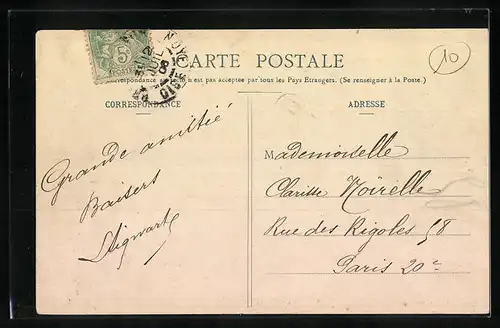 10
5
CARTE POSTALE
correspondance au recto n'est pas acceptée par tous les Pays Etrangers. (Se renseigner à la Poste.)
CORRESPONDANCE
ADRESSE
Grande amitié
Baisers
Mademoiselle
Clarisse Noirelle
Rue des Rigoles 58
Paris 20e